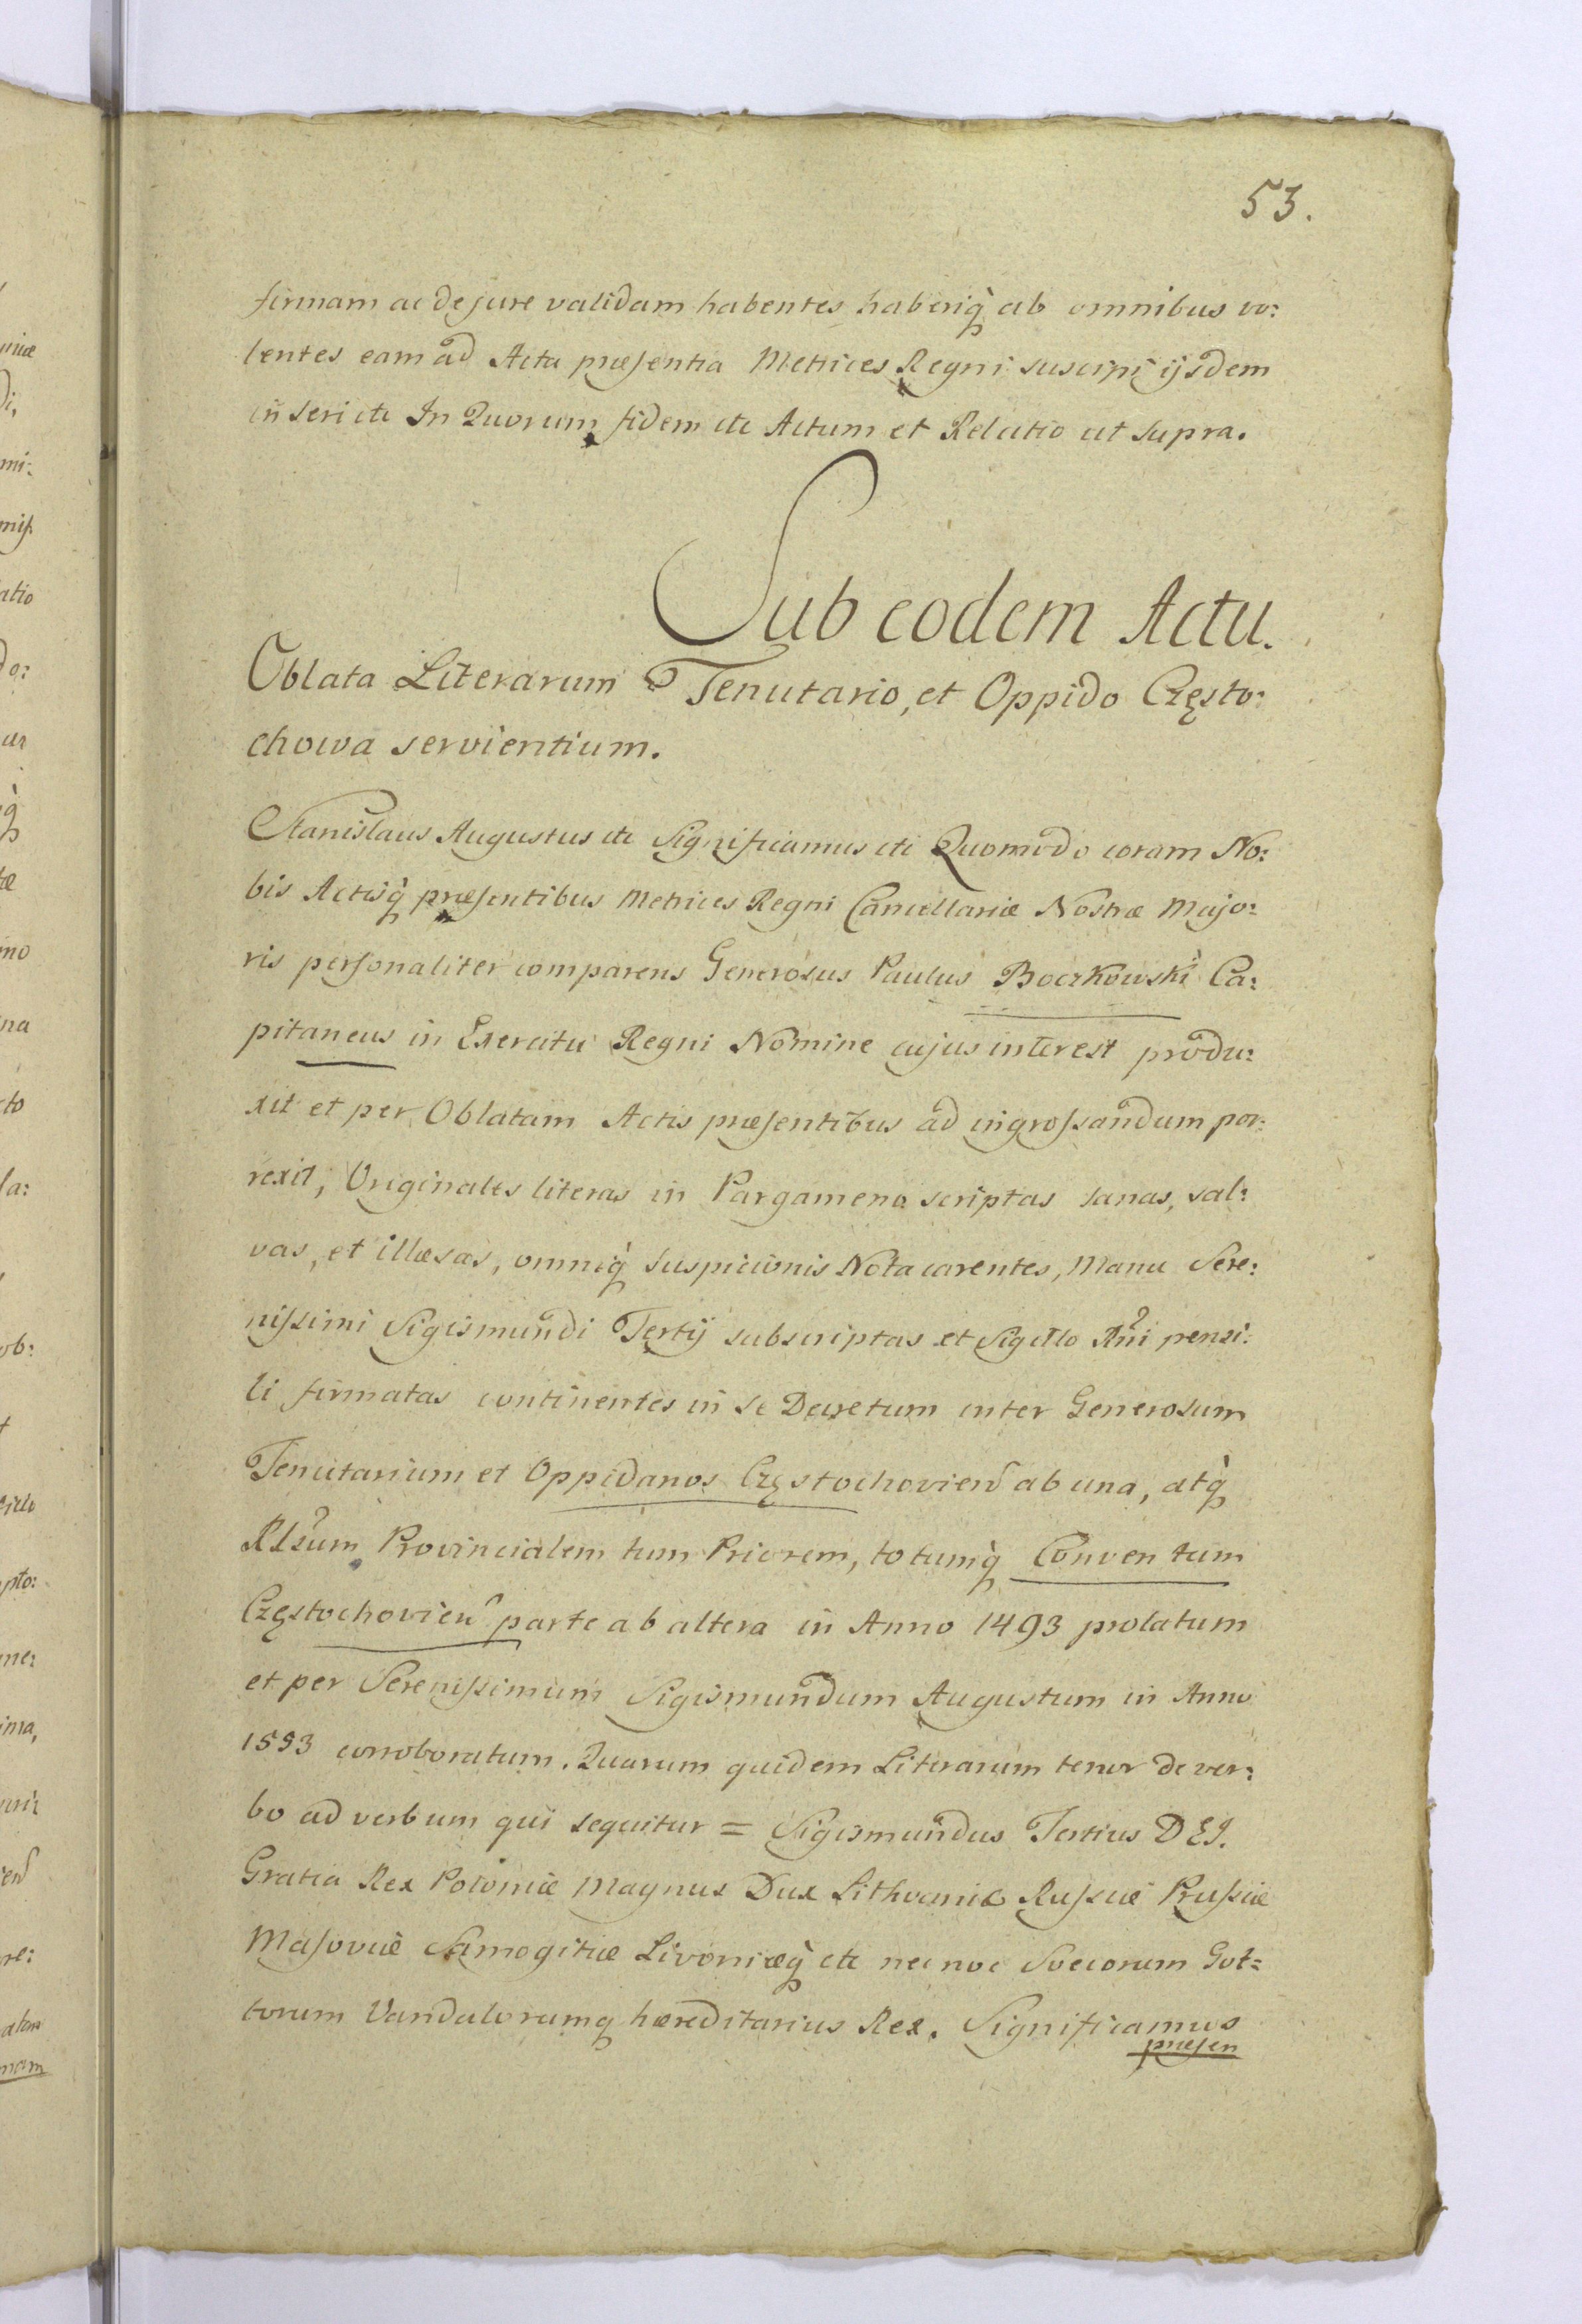 53.
firmam ac de jure validam habentes haberiq̀ ab omnibus vo:
lentes eam ad Acta præsentia Metrices Regni suscipi ijsdem
inseri etc In Quorum fidem etc Actum et Relatio ut supra.
Sub eodem Actu.
Oblata Literarum Tenutario, et Oppido Często:
chowa servientium.
Stanislaus Augustus etc Significamus etc Quomodo coram No:
bis Actisq̀ præsentibus Metrices Regni Cancellariæ Nostræ Majo:
ris personaliter comparens Generosus Paulus Boczkowski Ca:
pitaneus in Exercitu Regni Nomine cujus interest produ:
xit et per Oblatam Actis præsentibus ad ingrossandum por:
rexit, Originales literas in Pargameno scriptas sanas, sal:
vas, et illæsas, omniq̀ suspicionis Nota carentes, Manu Sere:
nissimi Sigismundi Tertij subscriptas et Sigillo Rni pensi:
li firmatas continentes in se Decretum inter Generosum
Tenutarium et Oppidanos Częstochovien ab una, atq̀
Rlsum Provincialem tum Priorem, totumq̀ Conventum
Częstochovien parte ab altera in Anno 1493 prolatum
et per Serenissimum Sigismundum Augustum in Anno
1553 corroboratum. Quarum quidem Literarum tenor de ver:
bo ad verbum qui sequitur = Sigismundus Tertius DEI.
Gratia Rex Poloniæ Magnus Dux Lithvaniæ Russiæ Prussiæ
Masoviæ Samogitiæ Livoniæq̀ etc nec noc Svecorum Got=
torum Vandalorumq hæreditarius Rex. Significamus
præsen